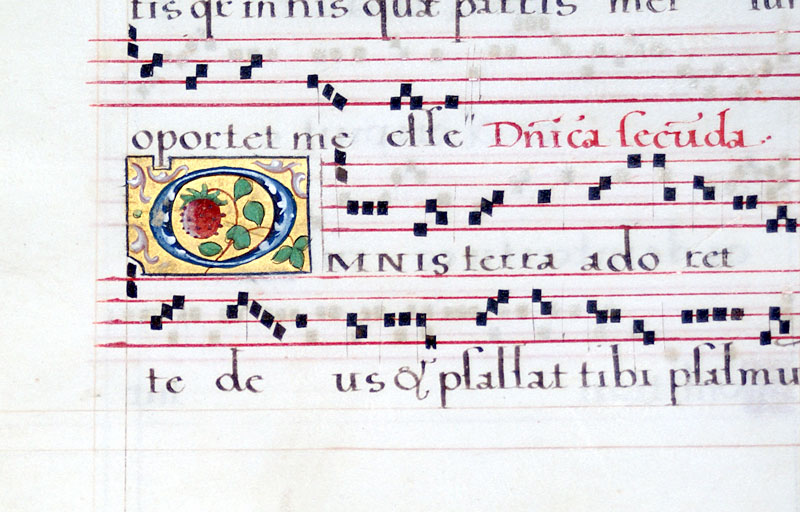 tis qr in his quæ patris mei
oportet me esse Dñica secũda.
OMNIS terra adoret
te deus & psallat tibi psalmu